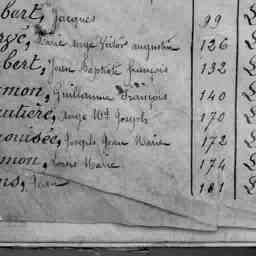 bert, Jacques 99
Marie Ange Victor augustin 126
bert, Jean Baptiste françois 132
mon, Guillaume François 140
autière, Ange Md Joseph 170
ouisée, Joseph Jean Marie 172
mon, Louis Marie 174
ns, Jean 181